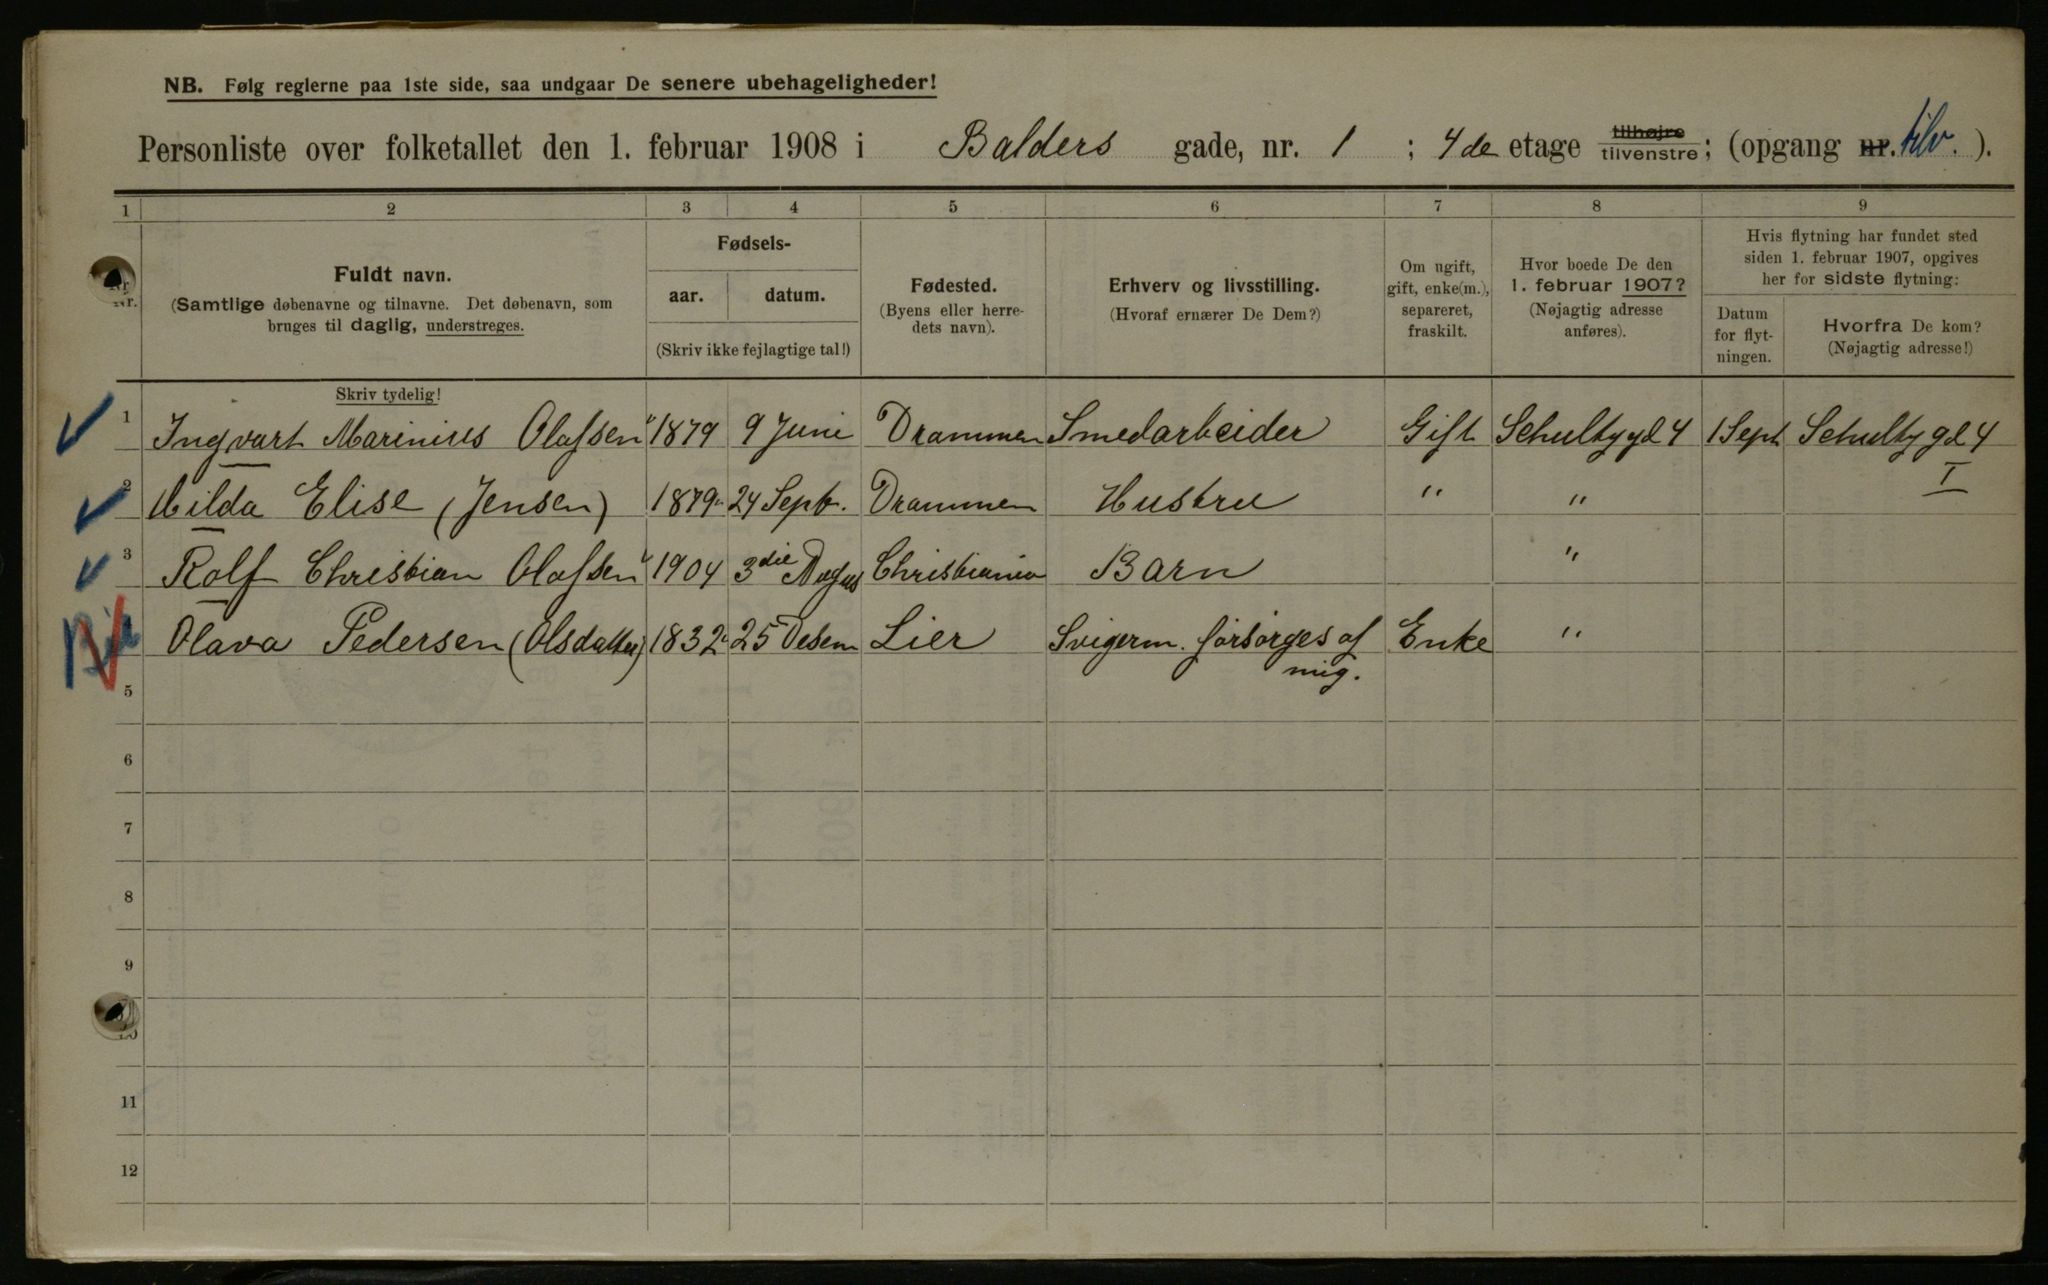 NB. Følg reglerne paa 1ste side, saa undgaar De senere ubehageligheder!
Personliste over folketallet den 1. februar 1908 i Balders gade, nr. 1 ; 4de etage tilhøjre tilvenstre; (opgang nr. tilv. ).
1 2 3 4 5 6 7 8 9
Nr.
Fuldt navn.
(Samtlige døbenavne og tilnavne. Det døbenavn, som
bruges til daglig, understreges.
Fødsels-
aar. datum.
(Skriv ikke fejlagtige tal!)
Fødested.
(Byens eller herre-
dets navn).
Erhverv og livsstilling.
(Hvoraf ernærer De Dem?)
Om ugift,
gift, enke(m.),
separeret,
fraskilt.
Hvor boede De den
1. februar 1907?
(Nøjagtig adresse
anføres).
Hvis flytning har fundet sted
siden 1. februar 1907, opgives
her for sidste flytning:
Datum
for flyt-
ningen.
Hvorfra De kom?
(Nøjagtig adresse!)
Skriv tydelig!
1 Ingvart Marinius Olafsen 1879 9 Juni Drammen Smedarbeider Gift Schultzgd 4 1 Sept Schultzgd 4
I
2 Hilda Elise (Jensen) 1879 24 Septr. Drammen Hustru " "
3 Rolf Christian Olafsen 1904 3die Augus Christiania Barn "
Olava Pedersen (Olsdatter) 1832 25 Desem Lier Svigerm. forsørges af Enke "
mig.
5
6
7
8
9
10
11
12